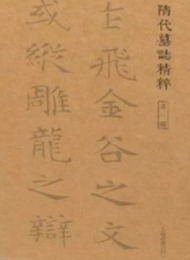 隋代墓誌精粹
士飛金谷之文
或縱雕龍之辯